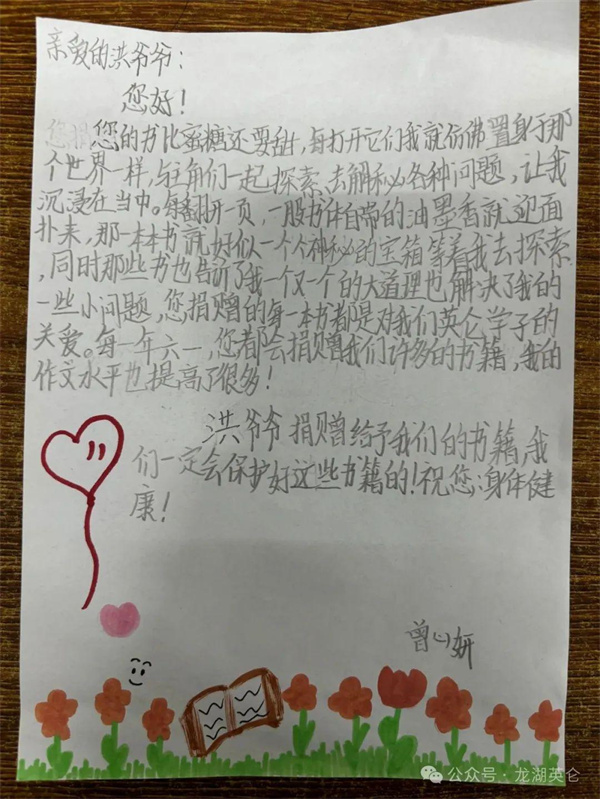 亲爱的洪爷爷：
您好！
您的书比蜜糖还要甜，每打开它们我就仿佛置身于那
个世界一样，与主角们一起探索、去解秘各种问题，让我
沉浸在当中。每翻开一页，一股书体自带的油墨香就迎面
扑来，那一本本书就好似一个个神秘的宝箱等着我去探索
，同时那些书也告诉了我一个又一个的大道理也解决了我的
一些小问题，您捐赠的每一本书都是对我们英仑学子的
关爱。每一年六一，您都会捐赠我们许多的书籍，我的
作文水平也提高了很多！
洪爷爷捐赠给予我们的书籍，我
们一定会保护好这些书籍的！祝您身体健
康！
曾心妍
公众号·龙湖英仑